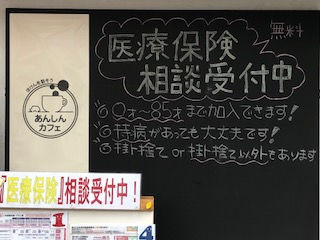 ほけんを知ろう
あんしん
カフェ
無料
医療保険
相談受付中
0才〜85才まで加入できます!
持病があっても大丈夫です!
掛け捨て or 掛け捨て以外でもあります
『医療保険』相談受付中!